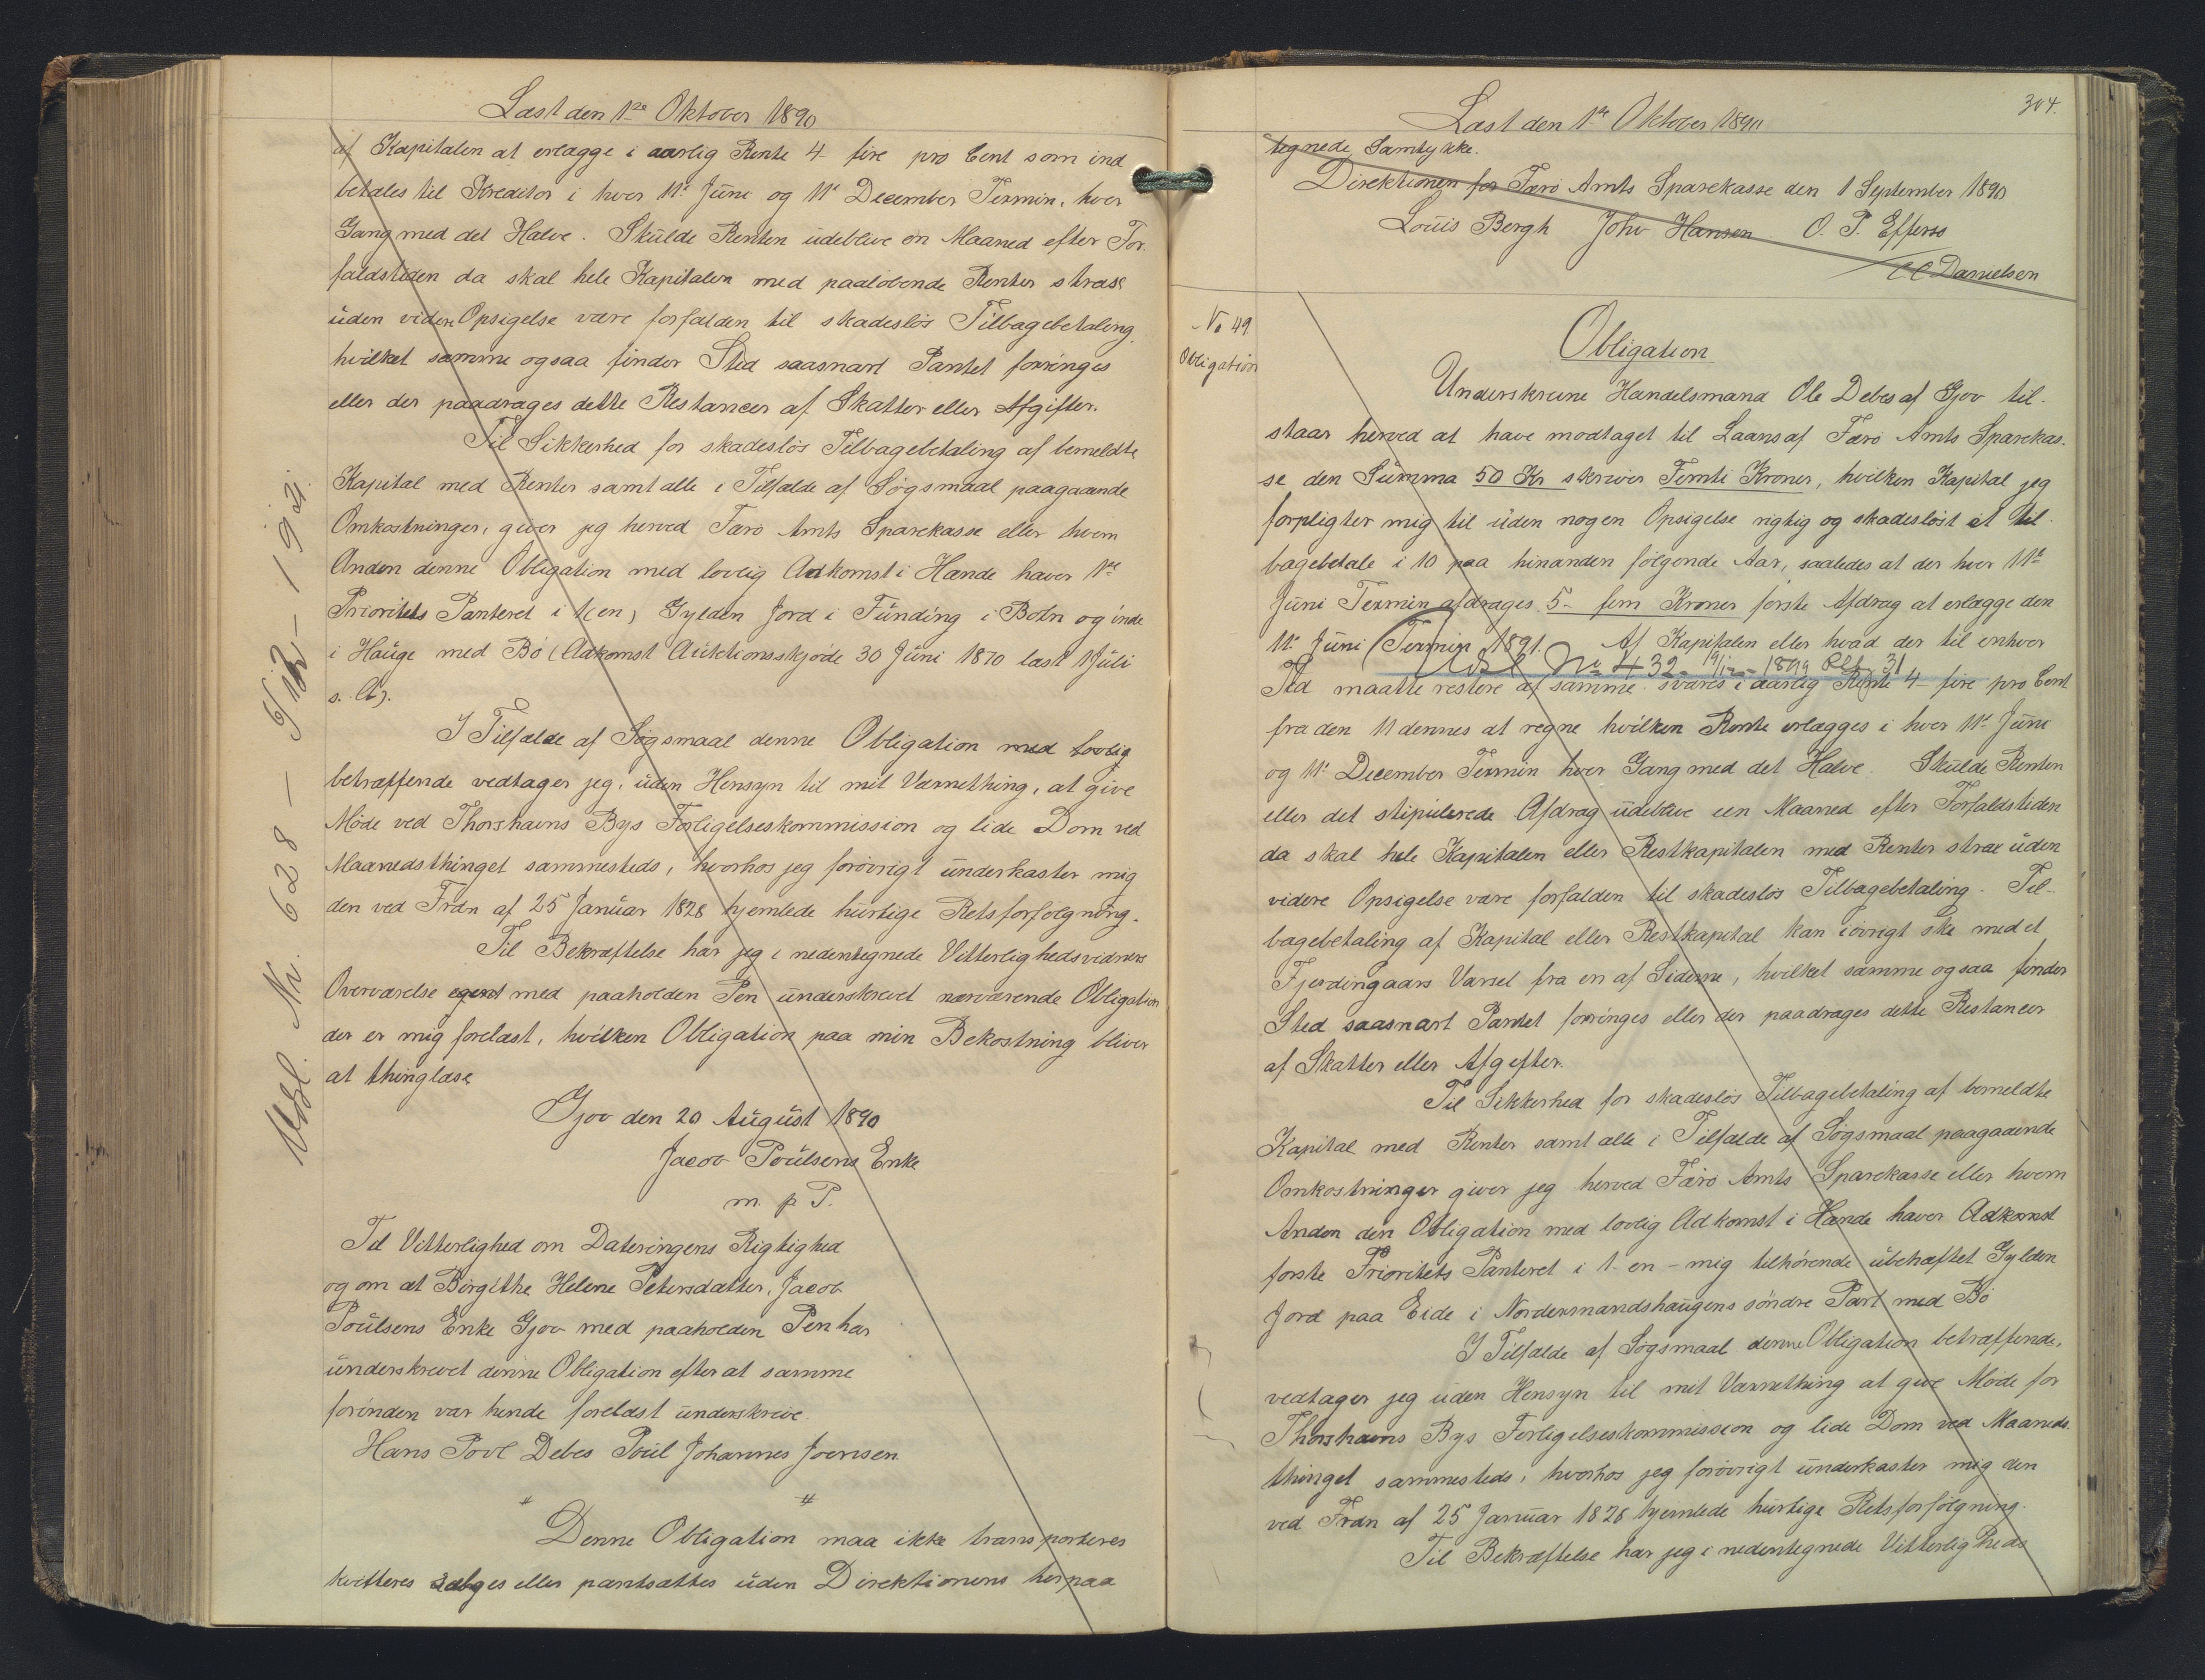 Læst den 1ste Oktober 1890
af Kapitalen at erlægge i aarlig Rente 4 fire pro Cent som ind
betales til Kreditor i hver 11e Juni og 11e December Termin, hver
Gang med det Halve. Skulde Renten udeblive en Maaned efter For-
faldstiden da skal hele Kapitalen med paaløbende Renter strax
uden videre Opsigelse være forfalden til skadesløs Tilbagebetaling,
hvilket samme ogsaa finder Sted saasnart Pantet forringes
eller der paadrages dette Restancer af Skatter eller Afgifter.
Til Sikkerhed for skadesløs Tilbagebetaling af bemeldte
Kapital med Renter samt alle i Tilfælde af Søgsmaal paagaaende
Omkostninger, giver jeg herved Færø Amts Sparekasse eller hvem
Anden denne Obligation med lovlig Adkomst i Hænde haver 1ste
Prioritets Panteret i 1 (en) Gylden Jord i Funding i Botn og inde
i Hauge med Bø (Adkomst Auktionsskjøde 30 Juni 1870 læst 1 Juli
s. A).
I Tilfælde af Søgsmaal denne Obligation med lovlig
betræffende vedtager jeg, uden Hensyn til mit Værnething, at give
Møde ved Thorshavns Bys Forligelseskommission og lide Dom ved
Maanedsthinget sammesteds, hvorhos jeg forøvrigt underkaster mig
den ved Frdn af 25 Januar 1828 hjemlede hurtige Retsforfølgning.
Til Bekræftelse har jeg i nedentegnede Vitterlighedsvidners
Overværelse egent med paaholden Pen underskrevet nærværende Obligation
der er mig forelæst, hvilken Obligation paa min Bekostning bliver
at thinglæse
Gjov den 20 August 1890
Jacob Poulsens Enke
m. p P.
Til Vitterlighed om Dateringens Rigtighed
og om at Birgithe Helene Petersdatter, Jacob
Poulsens Enke Gjov med paaholden Pen har
underskrevet denne Obligation efter at samme
forinden var hende forelæst underskrive.
Hans Povl Debes Poul Johannes Joensen
" "
Denne Obligation maa ikke transporteres
kvitteres sælges eller pantsættes uden Direktionens herpaa
Udsl. Nr. 628 - 6/12 - 1921.
304.
Læst den 1ste Oktober 1890
tegnede Samtykke.
Direktionen for Færø Amts Sparekasse den 1 September 1890
Louis Bergh Johv Hansen O. P. Effersø
CC Danielsen
No 49
Obligation
Obligation
Underskrevne Handelsmand Ole Debes af Gjov til-
staar herved at have modtaget til Laans af Færø Amts Sparekas-
se den Summa 50 Kr skriver Femti Kroner, hvilken Kapital jeg
forpligter mig til uden nogen Opsigelse rigtig og skadesløst at til-
bagebetale i 10 paa hinanden følgende Aar, saaledes at der hver 11te
Juni Termin afdrages 5- fem Kroner første Afdrag at erlægge den
11e Juni Termin 1891. Af Kapitalen eller hvad der til enhver
Udsl No 432 - 19/12 - 1899 31
Tid maatte restere af samme svares i aarlig Rente 4- fire pro Cent
fra den 11 dennes at regne hvilken Rente erlægges i hver 11e Juni
og 11e December Termin hver Gang med det Halve. Skulde Renten
eller det stipulerede Afdrag udeblive een Maaned efter Forfaldstiden
da skal hele Kapitalen eller Restkapitalen med Renter strax uden
videre Opsigelse være forfalden til skadesløs Tilbagebetaling. Til-
bagebetaling af Kapital eller Restkapital kan iøvrigt ske med et
Fjerdingaars Varsel fra en af Siderne, hvilket samme ogsaa finder
Sted saasnart Pantet forringes eller der paadrages dette Restancer
af Skatter eller Afgifter.
Til Sikkerhed for skadesløs Tilbagebetaling af bemeldte
Kapital med Renter samt alle i Tilfælde af Søgsmaal paagaaende
Omkostninger giver jeg herved Færø Amts Sparekasse eller hvem
Anden den Obligation med lovlig Adkomst i Hænde haver Adkomst
første Prioritets Panteret i 1- en - mig tilhørende ubehæftet Gylden
Jord paa Eide i Nordermandshaugens søndre Part med Bø
I Tilfælde af Søgsmaal denne Obligation betræffende,
vedtager jeg uden Hensyn til mit Værnething at give Møde for
Thorshavns Bys Forligelseskommission og lide Dom ved Maaneds-
thinget sammesteds, hvorhos jeg forøvrigt underkaster mig den
ved Frdn af 25 Januar 1828 hjemlede hurtige Retsforfølgning.
Til Bekræftelse har jeg i nedentegnede Vitterligheds